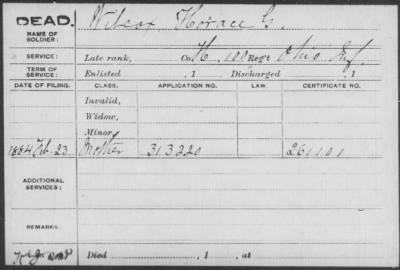 DEAD.
NAME OF SOLDIER: Wilcox, Horace G.
SERVICE: Late rank, Co. H, 100 Reg't Ohio Inf.
TERM OF SERVICE: Enlisted , 1 Discharged , 1
DATE OF FILING. CLASS. APPLICATION NO. LAW. CERTIFICATE NO.
Invalid,
Widow,
Minor,
1884 Feb. 23 Mother 313220 261101
ADDITIONAL SERVICES:
REMARKS:
Died , 1 , at